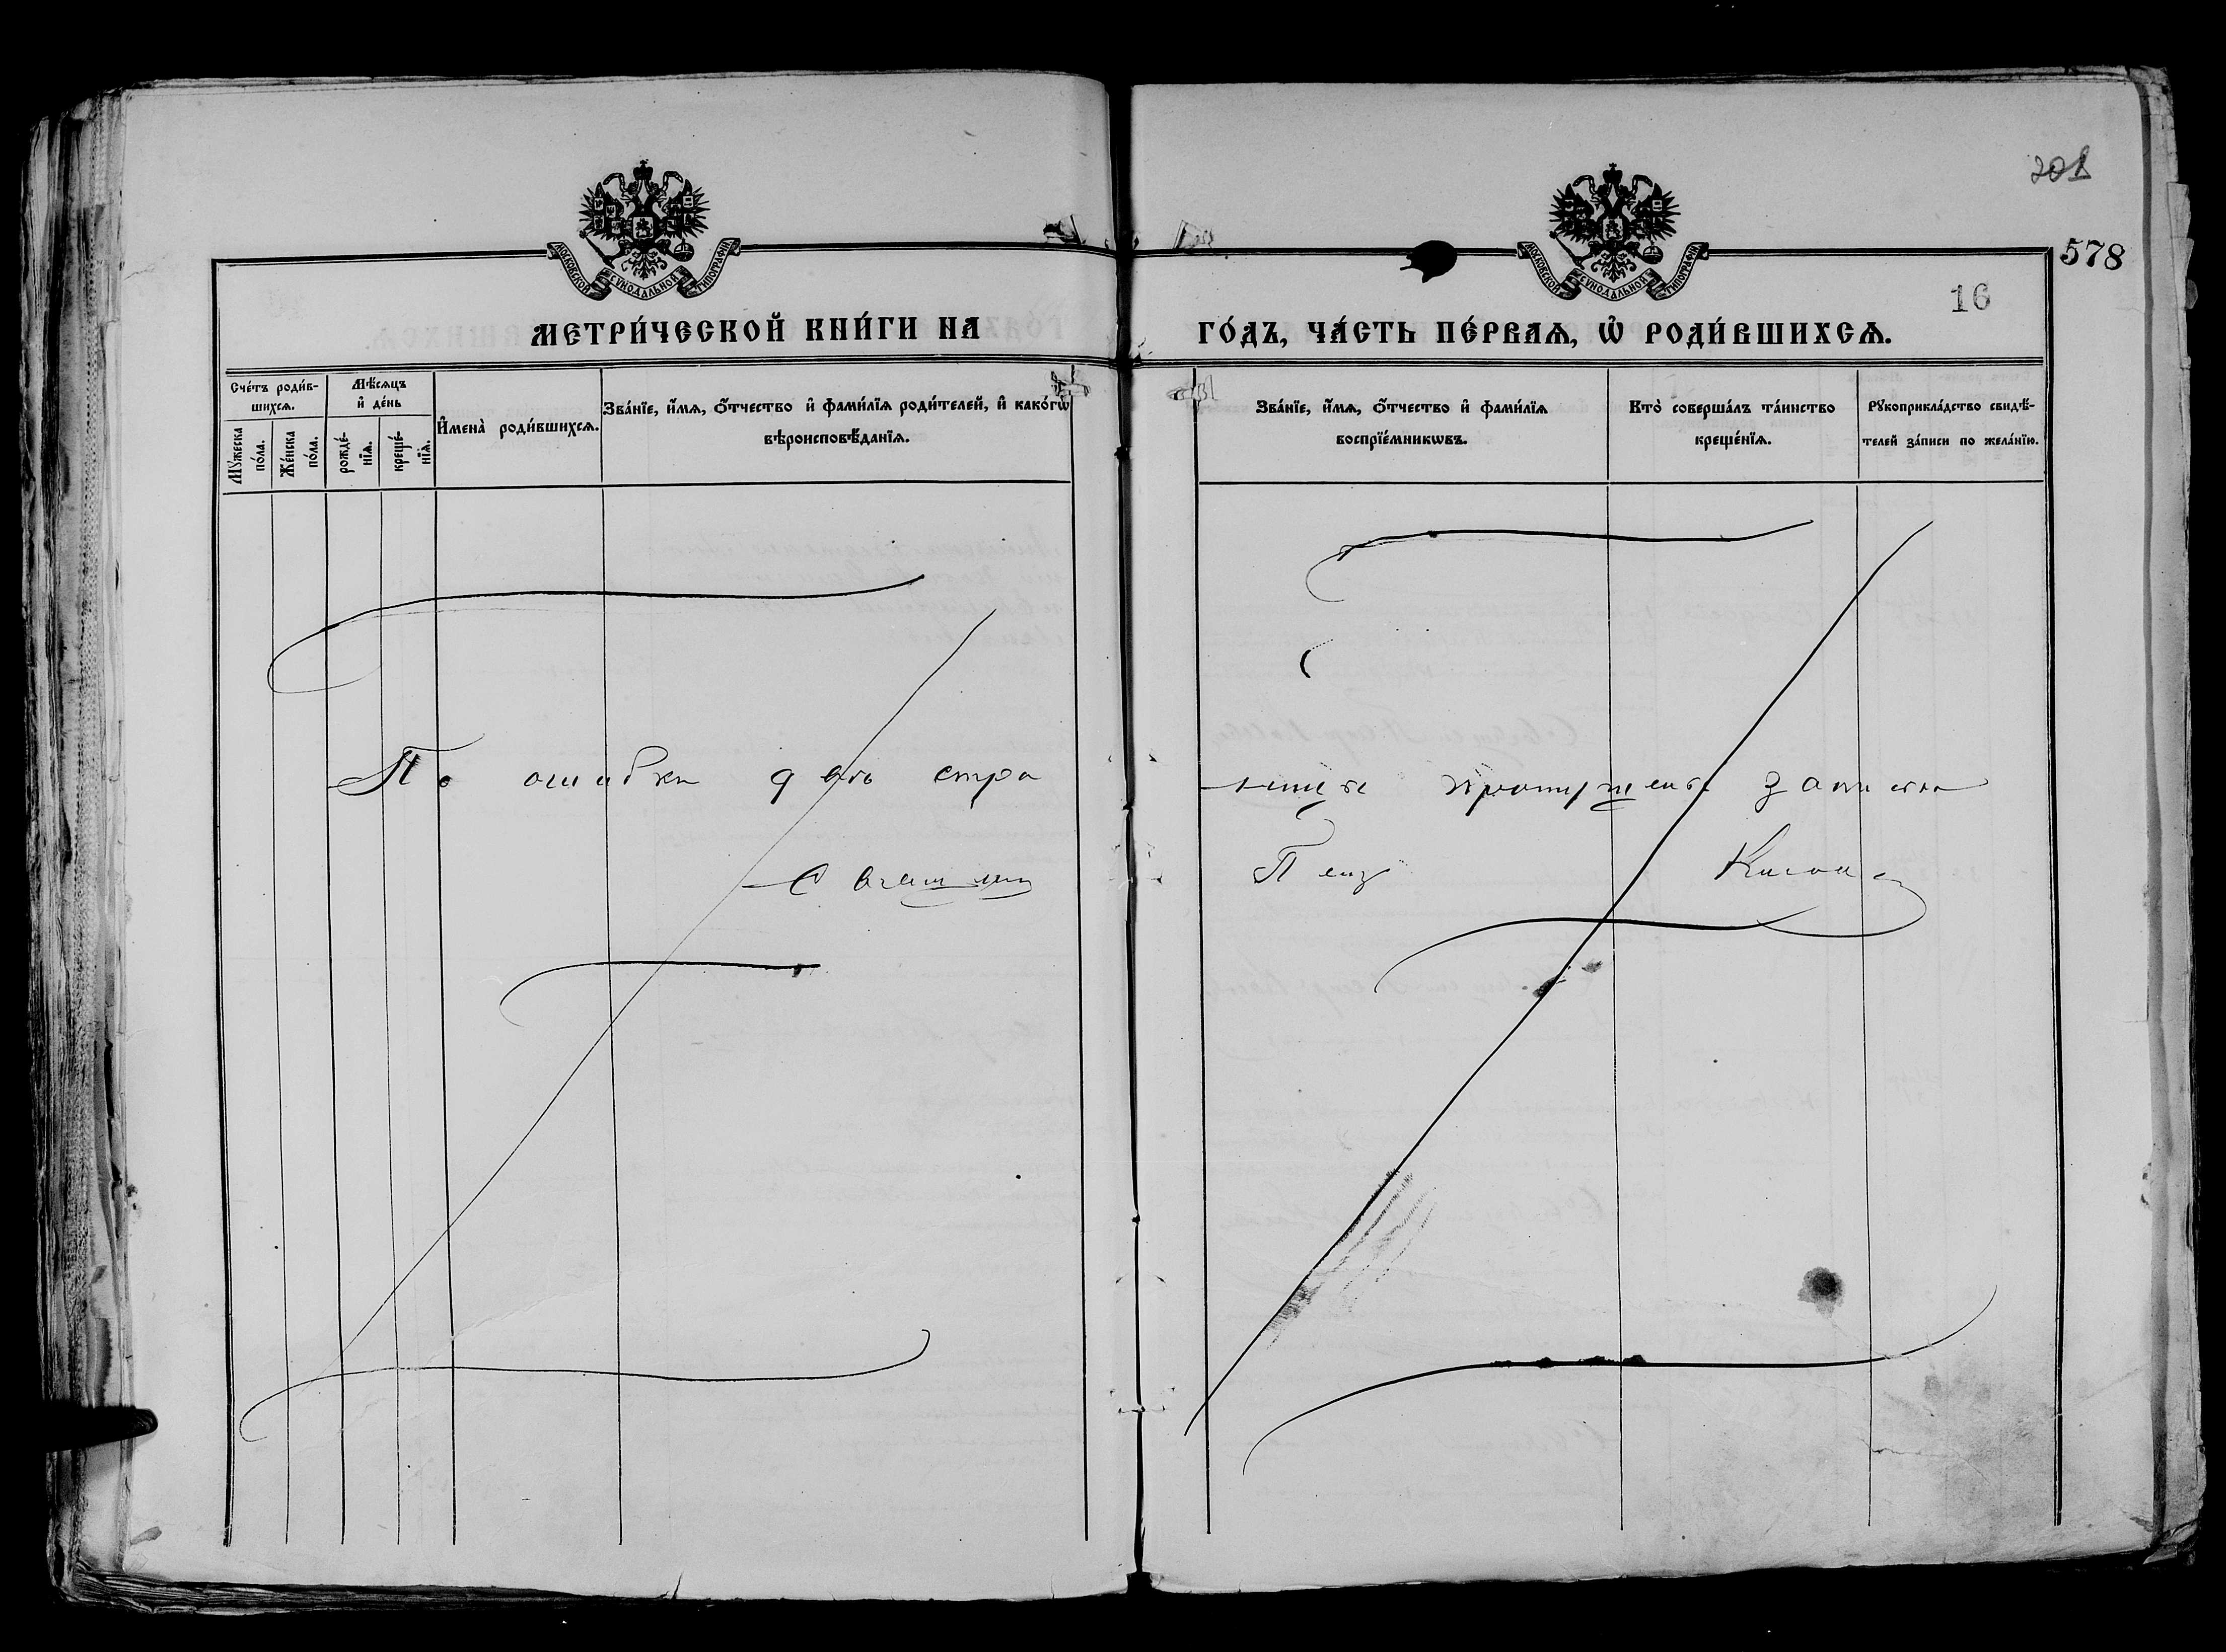 201
578
16
МОСКОВСКОЙ СѴНОДАЛЬНОЙ ТИПОГРАФІИ
МОСКОВСКОЙ СѴНОДАЛЬНОЙ ТИПОГРАФІИ
МЕТРИ́ЧЕСКОЙ КНИ́ГИ НА ГО́ДЪ, ЧА́СТЬ ПЕ́РВАѦ, Ѡ҆ РОДИ́ВШИХСѦ.
Сче́тъ роди́в-
шихсѧ.
Мꙋ́жеска по́ла.
Же́нска по́ла.
Мѣ́сѧцъ
и҆ де́нь
рожде́-
нїѧ.
креще́-
нїѧ.
И҆мена̀ роди́вшихсѧ.
Зва́нїе, и҆́мѧ, ѻ҆́тчество и҆ фами́лїѧ роди́телей, и҆ како́гѡ
вѣроисповѣ́данїѧ.
Зва́нїе, и҆́мѧ, ѻ҆́тчество и҆ фами́лїѧ
воспрїе́мникѡвъ.
Кто̀ соверша́лъ та́инство
креще́нїѧ.
Рꙋкоприкла́дство свидѣ́-
телей за́писи по жела́нїю.
По ошибке две стра
ницы пропущены
Священник